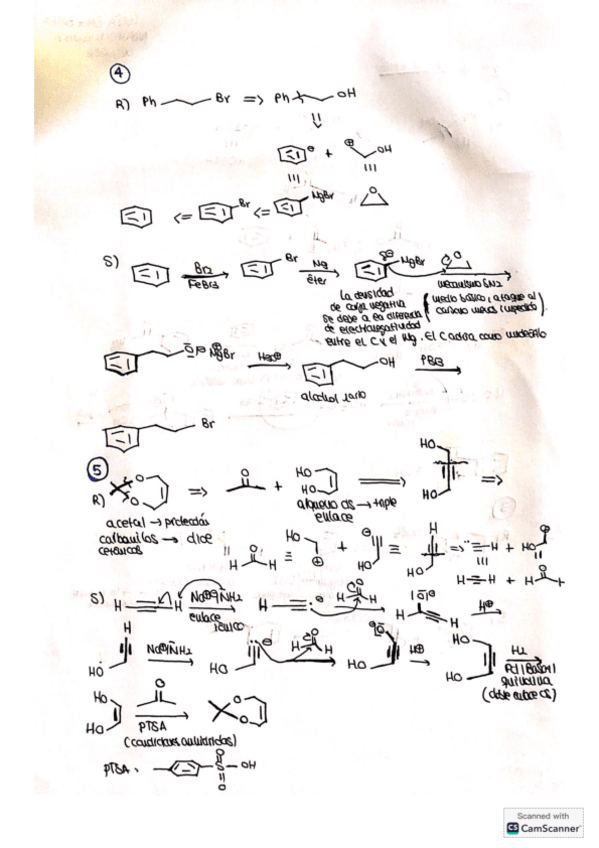 ④
R) Ph Br => Ph OH
⊖ + ⊕ OH
O
<= Br <= MgBr
S) Br2 FeBr3 Br Mg éter δ⊖ MgBr O mecanismo SN2
La densidad de carga negativa se debe a la diferencia de electronegatividad entre el C y el Mg. El C actúa como nucleófilo
(medio básico, ataque al carbono menos impedido)
O⊖ ⊕MgBr H3O⊕ OH PBr3
alcohol 1ario
Br
⑤
R) O O => O + HO HO => HO HO =>
acetal → protección
carbonilos → diol
alqueno cis → triple enlace
O H H ≡ HO ⊕ + ⊖ HO ≡ H HO => ≡-H + HO ⊕
H-≡-H + O H
S) H-≡-H Na⊕ ⊖NH2 H-≡ ⊖ O H H |O|⊖ H H⊕
H HO Na⊕ ⊖NH2 HO ⊖ O H H ⊖O HO H⊕ HO HO H2
Pd | BaSO4 | quinolina
(doble enlace cis)
HO HO O PTSA O O
(condiciones anhidridas)
PTSA: O S OH O
Scanned with
CS CamScanner